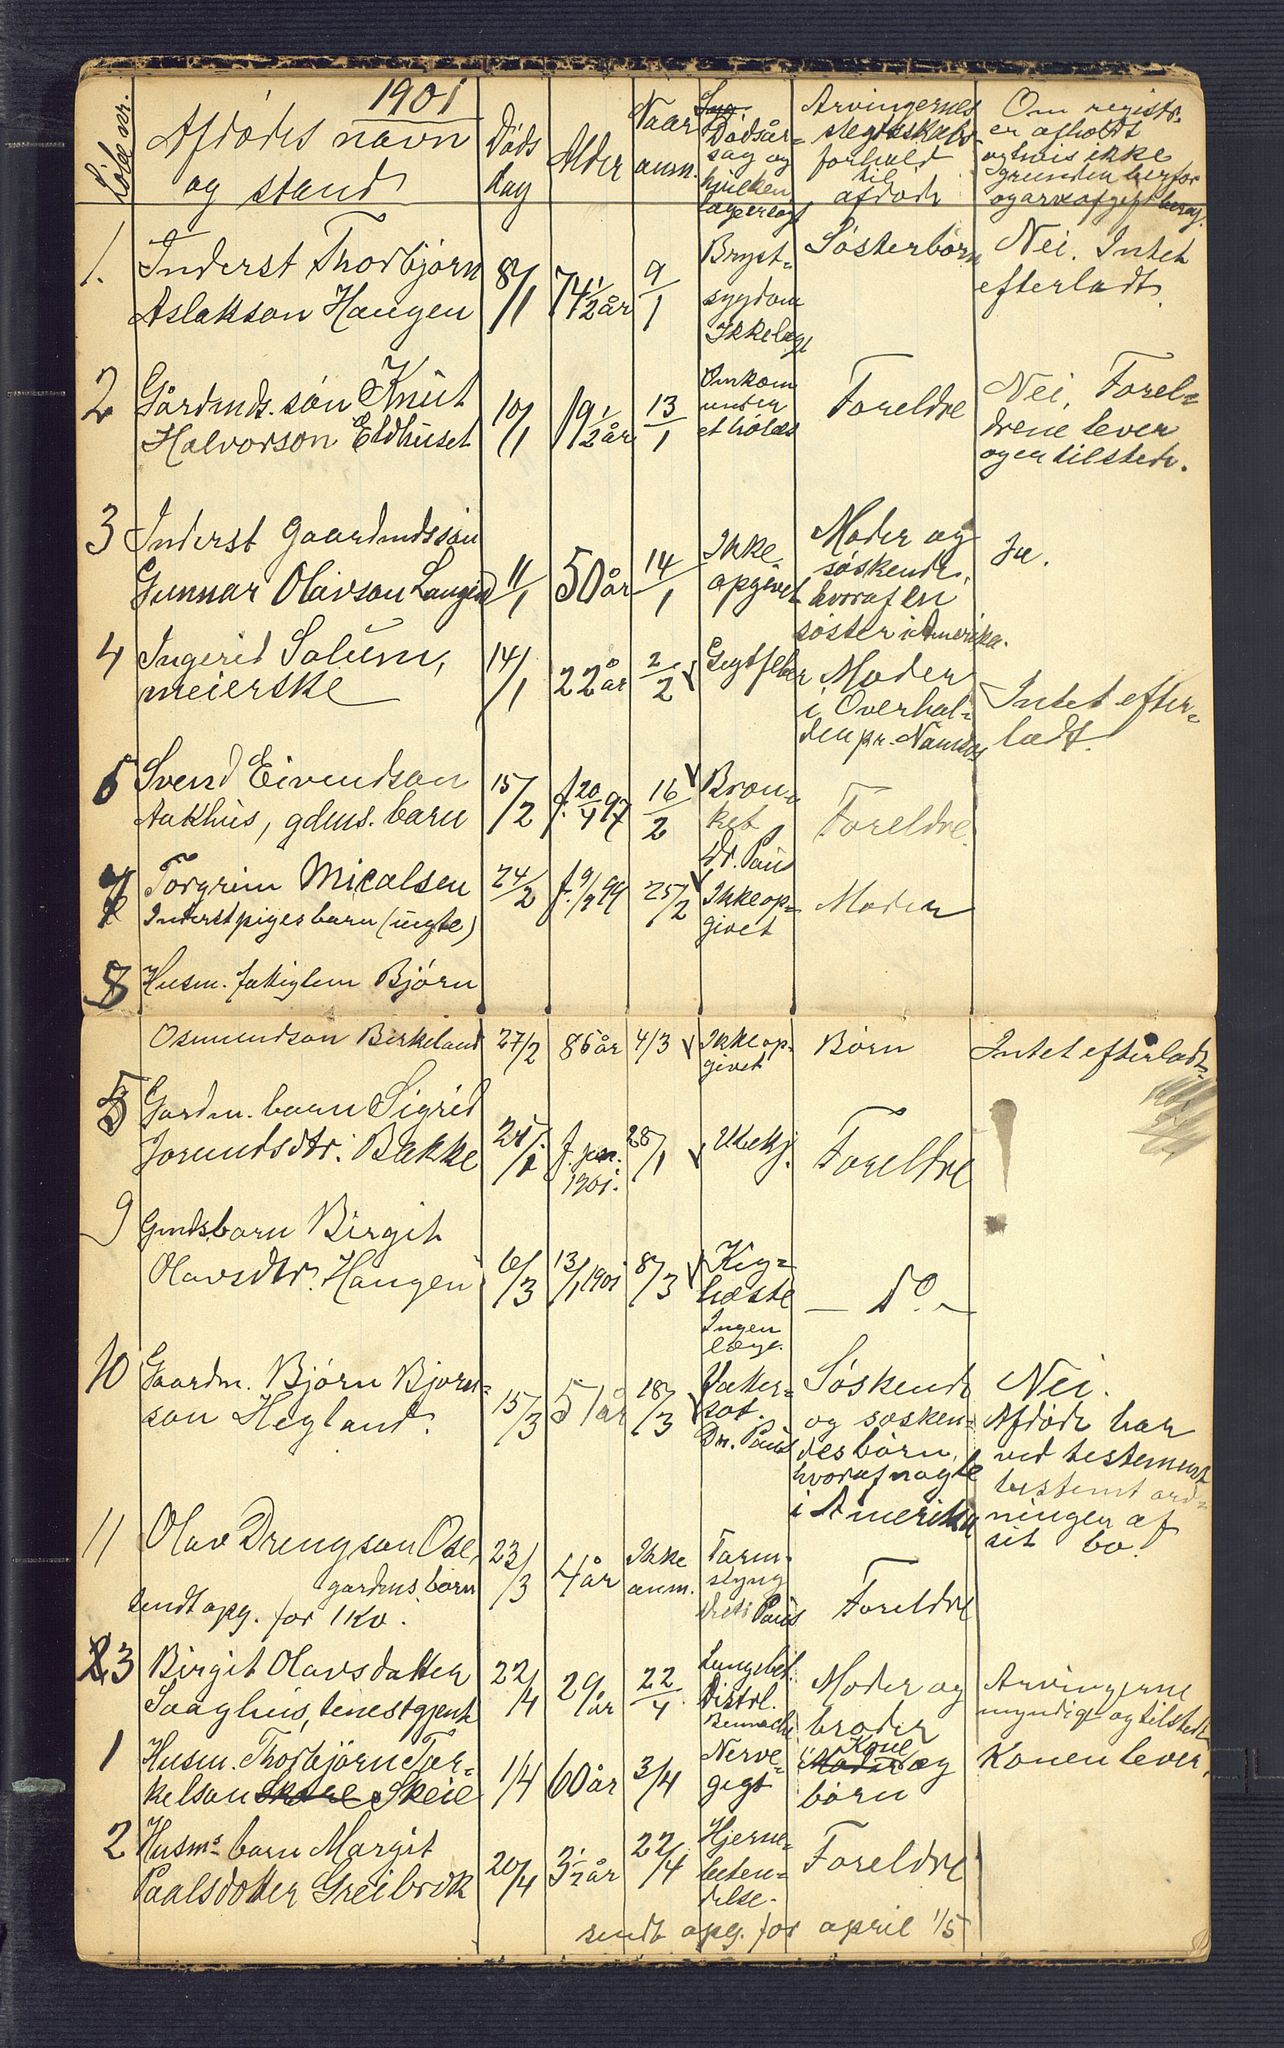 1901
Löbe nr.
Afdödes navn
og stand
Döds
dag
Alder
Naar
anm.
Dödsår-
sag og
hvilken
Arvingernes
slegtskabs-
forhold
til
afdöde
Om registr.
er afholdt
og hvis ikke
grunden herfor
og arveafgift
1. Inderst Thorbjørn
Aslakson Haugen
8/1
74 1/2 år
9/1
Bryst-
sygdom
Ikke læge
Søsterbørn
Nei. Intet
efterladt.
2 Gårdmds. søn Knut
Halvorson Eldhuset
10/1
19 1/2 år
13/1
Omkom
under
et hölæs
Foreldre
Nei, Forel-
drene lever
og er tilstede.
3 Inderst Gaardmdssøn
Gunnar Olavson Langeid
11/1
50 år
14/1
Ikke
opgivet
Moder og
søskende,
hvoraf en
søster i Amerika.
Ja.
4 Ingerid Solum,
meierske
14/1
22 år
2/2
Gigtfeber
Moder
i Overhal-
den pr. Namsos
Intet efter-
ladt.
6 Svend Eivendson
Aakhus, gdms. barn
15/2
f. 20/4 97
16/2
Bron-
kit
Dr. Paus
Foreldre
7 Torgrim Micalsen
Inderstpiges barn (uegte)
24/2
f. 9/9 99
25/2
Ikke op-
givet
Moder
8 Husm. fattiglem Bjørn
Osmundson Birkeland
27/2
86 år
4/3
Ikke op-
givet
Børn
Intet efterladt
5 Gardm. barn Sigrid
Jorundsdtr. Bakke
f. jan.
1901.
28/1
Ubekj.
Foreldre
9 Gmdsbarn Birgit
Olavsdtr. Haugen
6/3
13/1 1901
8/3
Kig-
hoste
Ingen
læge.
- Do. -
10 Gaardm. Bjørn Bjørn-
son Hegland.
15/3
51 år
18/3
Vater-
sot.
Dr. Paus
Søskende
og søsken-
desbørn,
hvoraf nogle
i Amerika
Nei.
Afdøde har
ved testament
bestemt ord-
ningen af
sit bo.
11 Olav Drengson Ose,
gardms. barn
23/3
4 år
Ikke
anm.
Tarm-
slyng
Paus
Foreldre
sendt opg. for 1 Kv.
3 Birgit Olavsdatter
Saaghus, tenestgjente
22/4
29 år
22/4
Lungebet.
Distrl.
Moder og
broder
Arvingerne
myndige og tilstede
1 Husm. Thorbjørn Tor-
kelson Skeie
1/4
60 år
3/4
Nerve-
gigt
Kone
og
børn
Konen lever.
2 Husms barn Margit
Paalsdotter Greibrok
20/4
3 1/2 år
22/4
Hjerne-
beten-
delse.
Foreldre
sendt opg. for april 1/5